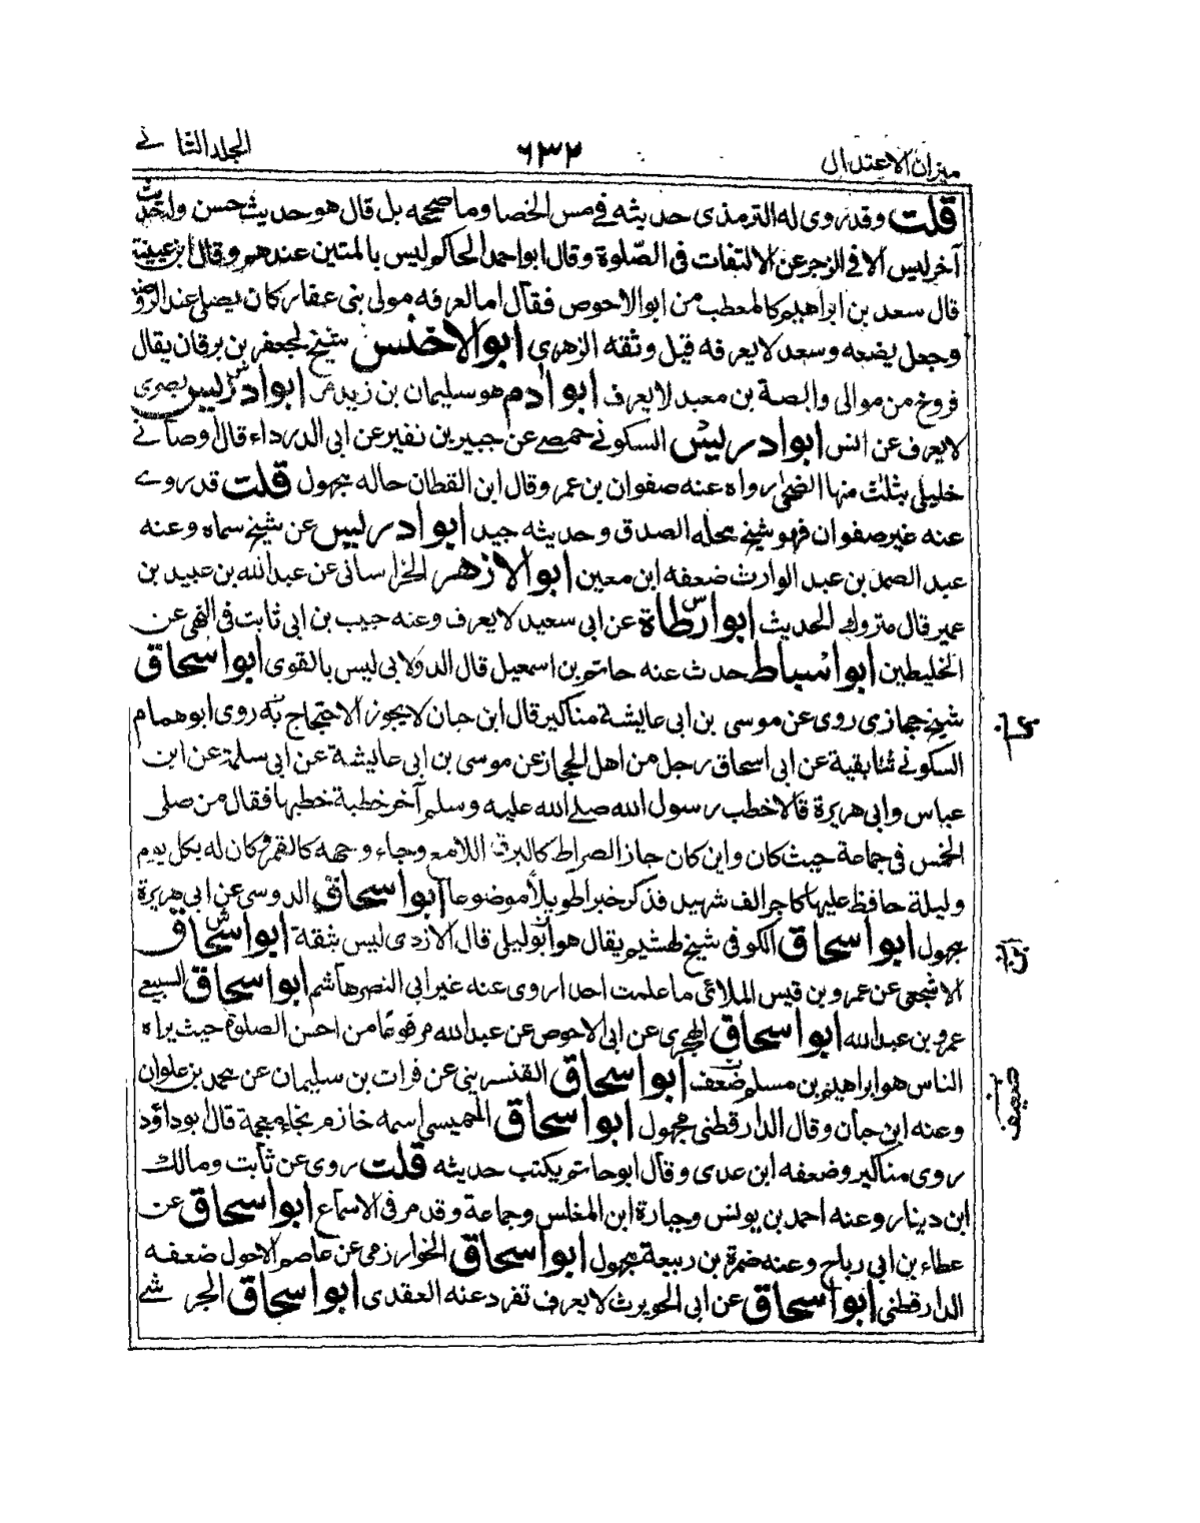 ميزان الاعتدال
٦٣٢
الجلد الثاني
قلت وقد روى له الترمذى حديثه في مس الخصا وما صححه بل قال هو حديث حسن وله حديث
آخر ليس الا في الزجر عن الالتفات فى الصّلوة وقال ابو احمد الحاكم ليس بالمتين عندهم وقال ابن عيينة
قال سعد بن ابراهيم كالمعطب من ابو الاحوص فقال اما لعرفه مولى بنى عفار كان يصلى عند الروضة
وجعل يضعه وسعد لا يعرفه قيل وثقه الزهرى ابو الاخنس شيخ لجعفر بن برقان يقال
فروخ من موالى وابصة بن معبد لا يعرف ابو آدم هو سليمان بن زيد مر ابو ادريس بصرى
لا يعرف عن انس ابو ادريس السكوني حمصي عن جبير بن نفير عن ابى الدرداء قال اوصاني
خليلى بثلث منها الضحى رواه عنه صفوان بن عمر وقال ابن القطان حاله مجهول قلت قد روى
عنه غير صفوان فهو شيخ محله الصدق وحديثه جيد ابو ادريس عن شيخ سماه وعنه
عبد الصمد بن عبد الوارث ضعفه ابن معين ابو الازهر الخراسانى عن عبد الله بن عبيد بن
عمير قال متروك الحديث ابو ارطاة عن ابى سعيد لا يعرف وعنه حبيب بن ابى ثابت فى النهى عن
الخليطين ابو اسباط حدث عنه حاتم بن اسمعيل قال الدولابى ليس بالقوى ابو اسحاق
شيخ حجازى روى عن موسى بن ابى عايشة مناكير قال ابن حبان لا يجوز الاحتجاج به روى ابو همام
السكوني ثنا بقية عن ابى اسحاق رجل من اهل الحجاز عن موسى بن ابى عايشة عن ابى سلمة عن ابن
عباس وابى هريرة قالا خطب رسول الله صلى الله عليه وسلم آخر خطبة خطبها فقال من صلى
الخمس فى جماعة حيث كان واين كان جاز الصراط كالبرق اللامع وجاء وجهه كالقمر وكان له بكل يوم
وليلة حافظ عليها كاجر الف شهيد فذكر خبرا طويلا موضوعا ابو اسحاق الدوسى عن ابى هريرة
مجهول ابو اسحاق الكوفى شيخ لهشيم يقال هو ابو ليلى قال الازدى ليس بثقة ابو اسحاق
الاشجعى عن عمرو بن قيس الملائى ما علمت احدا روى عنه غير ابى النضر هاشم ابو اسحاق السبيعي
عمرو بن عبد الله ابو اسحاق الهجرى عن ابى الاحوص عن عبد الله مرفوعا من احسن الصلوة حيث يراه
الناس هو ابراهيم بن مسلم ضعف ابو اسحاق القنسرينى عن فرات بن سليمان عن محمد بن علوان
وعنه ابن حبان وقال الدارقطنى مجهول ابو اسحاق الحميسى اسمه خازم بخاء معجمة قال ابو داؤد
روى مناكير وضعفه ابن عدى وقال ابو حاتم يكتب حديثه قلت روى عن ثابت ومالك
ابن دينار وعنه احمد بن يونس وجبارة ابن المغلس وجماعة وقد مر فى الاسماء ابو اسحاق عن
عطاء بن ابى رباح وعنه ضمرة بن ربيعة مجهول ابو اسحاق الخوارزمى عن عاصم الاحول ضعفه
الدارقطنى ابو اسحاق عن ابى الحويرث لا يعرف تفرد عنه العقدى ابو اسحاق الجرشي
ضعيف